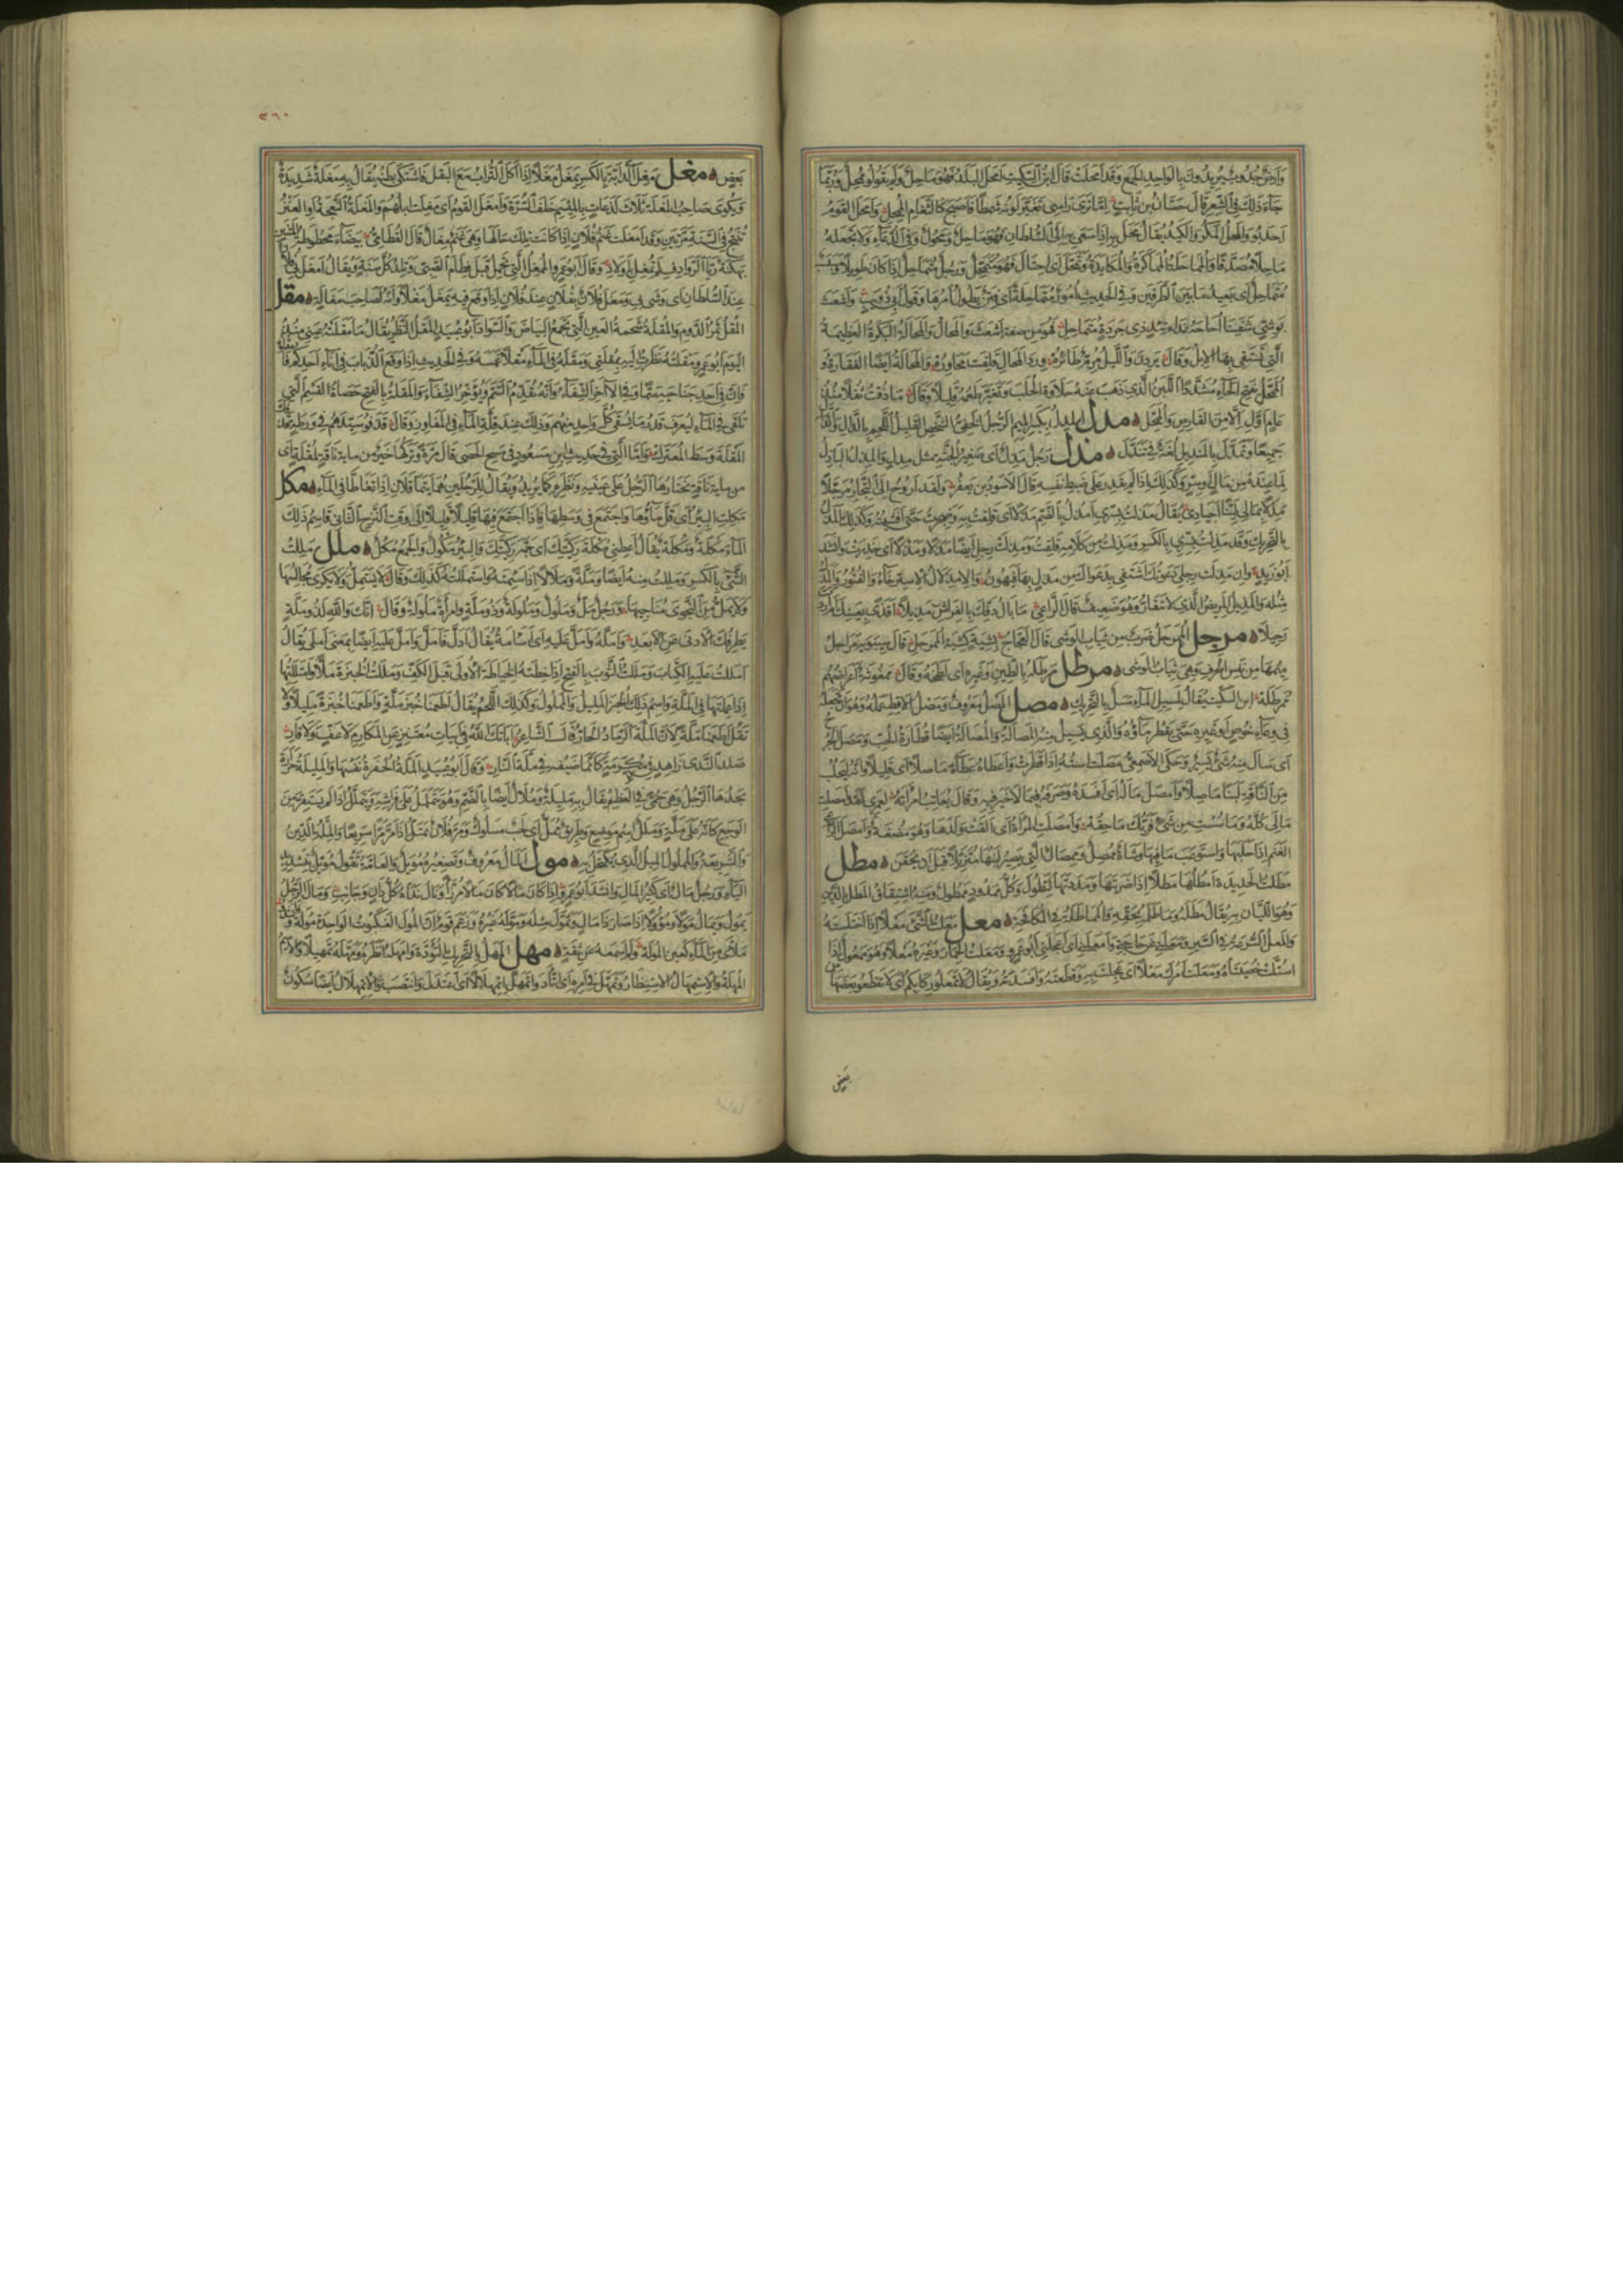 وَأَرْضٌ جُدُوبٌ يُرِيدُونَ بِالْوَاحِدِ الْجَمْعَ وَقَدْ أَمْحَلَتْ قَالَ ابْنُ السِّكِّيتِ أَمْحَلَ الْبَلَدُ فَهُوَ مَاحِلٌ وَلَمْ يَقُولُوا مُمْحِلٌ وَرُبَّمَا
جَاءَ ذَلِكَ فِي الشِّعْرِ قَالَ حَسَّانُ بْنُ ثَابِتٍ إِمَّا تَرَيْ رَأْسِي تَغَيَّرَ لَوْنُهُ شَمَطًا فَأَصْبَحَ كَالثَّغَامِ الْمُمْحِلِ وَأَمْحَلَ الْقَوْمُ
أَجْدَبُوا وَالْمَحْلُ الْمَكْرُ وَالْكَيْدُ يُقَالُ مَحَلَ بِهِ إِذَا سَعَى بِهِ إِلَى السُّلْطَانِ فَهُوَ مَاحِلٌ وَمَحُولٌ وَفِي الدُّعَاءِ وَلَا تَجْعَلْهُ
مَاحِلًا مُصَدَّقًا وَالْمُمَاحَلَةُ الْمُمَاكَرَةُ وَالْمُكَايَدَةُ وَتَمَحَّلَ أَيِ احْتَالَ فَهُوَ مُتَمَحِّلٌ وَرَجُلٌ مُتَمَاحِلٌ إِذَا كَانَ طَوِيلًا
مُتَمَاحِلٌ أَيْ بَعِيدُ مَا بَيْنَ الطَّرَفَيْنِ وَفِي الْحَدِيثِ أُمُورٌ مُتَمَاحِلَةٌ أَيْ فِتَنٌ يَطُولُ أَمْرُهَا وَقَوْلُ أَبِي ذُؤَيْبٍ وَأَشْعَثَ
بَوْشِيٍّ شَفَيْنَا أُحَاحَهُ غَدَاةَ إِذٍ ذِي جَرْدَةٍ مُتَمَاحِلِ فَهُوَ مِنْ صِفَةِ أَشْعَثَ وَالْمَحَالُ وَالْمَحَالَةُ الْبَكَرَةُ الْعَظِيمَةُ
الَّتِي تَسْتَقِي بِهَا الْإِبِلُ وَقَالَ يَرِدْنَ وَاللَّيْلُ مُرِمٌّ طَائِرُهُ وِرْدَ الْمَحَالِ قَلِقَتْ مَحَاوِرُهُ وَالْمَحَالَةُ أَيْضًا الْفَقَارَةُ وَ
الْمُمَحَّلُ بِفَتْحِ الْحَاءِ مُشَدَّدًا اللَّبَنُ الَّذِي ذَهَبَ عَنْهُ حَلَاوَةُ الْحَلَبِ وَتَغَيَّرَ طَعْمُهُ قَلِيلًا وَقَالَ مَا ذُقْتُ ثُفْلًا مُنْذُ
عَامٍ أَوَّلِ إِلَّا مِنَ الْقَارِصِ وَالْمُمَحَّلِ ه مدل الْمِدْلُ بِكَسْرِ الْمِيمِ الرَّجُلُ الْخَفِيُّ الشَّخْصِ الْقَلِيلُ اللَّحْمِ بِالدَّالِ وَالذَّالِ
جَمِيعًا وَتَمَدَّلَ بِالْمِنْدِيلِ لُغَةٌ فِي تَنَدَّلَ ه مذل رَجُلٌ مِذْلٌ أَيْ صَغِيرُ الْجُثَّةِ مِثْلُ مِدْلٍ وَالْمَذِلُ الْبَاذِلُ
لِمَا عِنْدَهُ مِنْ مَالٍ أَوْ سِرٍّ وَكَذَلِكَ إِذَا لَمْ يَقْدِرْ عَلَى ضَبْطِ نَفْسِهِ قَالَ الْأَسْوَدُ بْنُ يَعْفُرَ وَلَقَدْ أَرُوحُ إِلَى التِّجَارِ مُرَجَّلًا
مَذِلًا بِمَالِي لَيِّنًا أَجْيَادِي يُقَالُ مَذِلْتُ بِسِرِّي أَمْذُلُ بِالضَّمِّ مَذْلًا أَيْ قَلِقْتُ بِهِ وَضَجِرْتُ حَتَّى أَفْشَيْتُهُ وَكَذَلِكَ الْمَذَلُ
بِالتَّحْرِيكِ وَقَدْ مَذِلْتُ بِسِرِّي بِالْكَسْرِ وَمَذِلْتُ مِنْ كَلَامِهِ قَلِقْتُ وَمَذِلَتْ رِجْلِي أَيْضًا مَذَلًا وَمَذْلًا أَيْ خَدِرَتْ وَأَنْشَدَ
أَبُو زَيْدٍ وَإِنْ مَذِلَتْ رِجْلِي دَعَوْتُكِ أَشْتَفِي بِدَعْوَاكِ مِنْ مَذْلٍ بِهَا فَيَهُونُ وَالِامْذِلَالُ الِاسْتِرْخَاءُ وَالْفُتُورُ
مِثْلُهُ وَالْمَذِيلُ الْمَرِيضُ الَّذِي لَا يَتَقَارُّ وَهُوَ ضَعِيفٌ قَالَ الرَّاعِي مَا بَالُ دَفِّكَ بِالْفِرَاشِ مَذِيلًا أَقَذًى بِعَيْنِكَ أَمْ أَرَدْتَ
رَحِيلًا ه مرجل الْمُمَرْجَلُ ضَرْبٌ مِنْ ثِيَابِ الْوَشْيِ قَالَ الْعَجَّاجُ بِشِيَةٍ كَشِيَةِ الْمُمَرْجَلِ قَالَ سِيبَوَيْهِ مَرَاجِلُ
مِيمُهَا مِنْ نَفْسِ الْحَرْفِ وَهِيَ ثِيَابُ الْوَشْيِ ه مرطل مَرْطَلَهُ بِالطِّينِ وَغَيْرِهِ أَيْ لَطَخَهُ وَقَالَ مَمْغُوثَةٌ أَعْرَاضُهُمْ
مُمَرْطَلَهْ ابْنُ السِّكِّيتِ يُقَالُ لِمَسِيلِ الْمَاءِ مَسَلٌ بِالتَّحْرِيكِ ه مصل الْمَصْلُ مَعْرُوفٌ وَمَصْلُ الْأَقِطِ عَمَلُهُ وَهُوَ أَنْ تَجْعَلَهُ
فِي وِعَاءِ خُوصٍ أَوْ غَيْرِهِ حَتَّى يَقْطُرَ مَاؤُهُ وَالَّذِي يَسِيلُ مِنْهُ الْمُصَالَةُ وَالْمُصَالَةُ أَيْضًا قُطَارَةُ الْحُبِّ وَمَصَلَ الْجُرْحُ
أَيْ سَالَ مِنْهُ شَيْءٌ يَسِيرٌ وَحَكَى الْأَصْمَعِيُّ مَصَلَتِ اسْتُهُ إِذَا قَطَرَتْ وَأَعْطَاهُ عَطَاءً مَاصِلًا أَيْ قَلِيلًا وَإِنَّهُ لَيَحْلُبُ
مِنَ النَّاقَةِ لَبَنًا مَاصِلًا وَأَمْصَلَ مَالَهُ أَيْ أَفْسَدَهُ وَصَرَفَهُ فِيمَا لَا خَيْرَ فِيهِ وَقَالَ يُعَاتِبُ امْرَأَتَهُ لَعَمْرِي لَقَدْ أَمْصَلْتِ
مَالِيَ كُلَّهُ وَمَا سُسْتِ مِنْ شَيْءٍ فَرَبُّكِ مَاحِقُهْ وَأَمْصَلَتِ الْمَرْأَةُ أَيْ أَلْقَتْ وَلَدَهَا وَهُوَ مُضْغَةٌ وَأَمْصَلَ الرَّاعِي
الْغَنَمَ إِذَا حَلَبَهَا وَاسْتَوْعَبَ مَا فِيهَا وَشَاةٌ مُمْصِلٌ وَمِمْصَالٌ الَّتِي يَصِيرُ لَبَنُهَا مُتَزَيِّلًا قَبْلَ أَنْ يُحْقَنَ ه مطل
مَطَلْتُ الْحَدِيدَةَ أَمْطُلُهَا مَطْلًا إِذَا ضَرَبْتَهَا وَمَدَدْتَهَا لِتَطُولَ وَكُلُّ مَمْدُودٍ مَمْطُولٌ وَمِنْهُ اشْتِقَاقُ الْمَطْلِ بِالدَّيْنِ
وَهُوَ اللَّيَّانُ بِهِ يُقَالُ مَطَلَهُ وَمَاطَلَهُ بِحَقِّهِ ه معل مَعَلْتُ الشَّيْءَ مَعْلًا إِذَا اخْتَلَسْتَهُ
اسْتَلَلْتَ خُصْيَتَاهُ وَمَعَلْتَ أَمْرَكَ مَعْلًا أَيْ عَجِلْتَ بِهِ وَقَطَعْتَهُ وَأَفْسَدْتَهُ وَيُقَالُ لَا تَمْعَلُوا رِكَابَكُمْ أَيْ لَا تَقْطَعُوا بَعْضَهَا مِنْ
٣٦٠
بَعْضٍ ه مغل مَغِلَ الدَّابَّةُ بِالْكَسْرِ يَمْغَلُ مَغَلًا إِذَا أَكَلَ التُّرَابَ مَعَ الْبَقْلِ فَاشْتَكَى بَطْنَهُ يُقَالُ بِهِ مَغْلَةٌ شَدِيدَةٌ
وَيُكْوَى صَاحِبُ الْمَغْلَةِ ثَلَاثَ لَذَعَاتٍ بِالْمِيسَمِ خَلْفَ السُّرَّةِ وَأَمْغَلَ الْقَوْمُ أَيْ مَغِلَتْ إِبِلُهُمْ وَالْمَغْلَةُ النَّعْجَةُ أَوِ الْعَنْزُ
تُنْتَجُ فِي السَّنَةِ مَرَّتَيْنِ وَقَدْ أَمْغَلَتْ غَنَمُ فُلَانٍ إِذَا كَانَتْ تِلْكَ حَالَهَا وَهِيَ غَنَمٌ مِغَالٌ قَالَ الْقُطَامِيُّ بَيْضَاءُ مَحْطُوطَةُ الْمَتْنَيْنِ
بَهْكَنَةٌ رَيَّا الرَّوَادِفِ لَمْ تُمْغِلْ بِأَوْلَادِ وَقَالَ أَبُو عَمْرٍو الْمُمْغِلُ الَّتِي تَحْمِلُ قَبْلَ فِطَامِ الصَّبِيِّ وَتَلِدُ كُلَّ سَنَةٍ وَيُقَالُ أَمْغَلَ بِي فُلَانٌ
عِنْدَ السُّلْطَانِ أَيْ وَشَى بِي وَمَغَلَ فُلَانٌ بِفُلَانٍ عِنْدَ فُلَانٍ إِذَا وَقَعَ فِيهِ يَمْغَلُ مَغْلًا وَإِنَّهُ لَصَاحِبُ مَغَالَةٍ ه مقل
الْمُقْلُ ثَمَرُ الدَّوْمِ وَالْمُقْلَةُ شَحْمَةُ الْعَيْنِ الَّتِي تَجْمَعُ الْبَيَاضَ وَالسَّوَادَ أَبُو عُبَيْدٍ الْمَقْلُ النَّظَرُ يُقَالُ مَا مَقَلَتْهُ عَيْنِي مُنْذُ
الْيَوْمِ أَبُو عَمْرٍو مَقَلْتُهُ نَظَرْتُ إِلَيْهِ بِمُقْلَتِي وَمَقَلَهُ فِي الْمَاءِ مَقْلًا غَمَسَهُ وَفِي الْحَدِيثِ إِذَا وَقَعَ الذُّبَابُ فِي إِنَاءِ أَحَدِكُمْ فَامْقُلُوهُ
فَإِنَّ فِي أَحَدِ جَنَاحَيْهِ سَمًّا وَفِي الْآخَرِ الشِّفَاءَ وَإِنَّهُ يُقَدِّمُ السَّمَّ وَيُؤَخِّرُ الشِّفَاءَ وَالْمَقْلَةُ بِالْفَتْحِ حَصَاةُ الْقَسْمِ الَّتِي
تُلْقَى فِي الْمَاءِ لِيُعْرَفَ قَدْرُ مَا يُسْقَى كُلُّ وَاحِدٍ مِنْهُمْ وَذَلِكَ عِنْدَ قِلَّةِ الْمَاءِ فِي الْمَفَاوِزِ وَقَالَ قَذَفُوا سَيِّدَهُمْ فِي وَرْطَةٍ قَذْفَكَ
الْمَقْلَةَ وَسْطَ الْمُعْتَرَكْ وَأَمَّا الَّتِي فِي حَدِيثِ ابْنِ مَسْعُودٍ فِي مَسْحِ الْحَصَى قَالَ مَرَّةً وَتَرْكُهَا خَيْرٌ مِنْ مِائَةِ نَاقَةٍ لِمُقْلَةٍ أَيْ
مِنْ مِائَةِ نَاقَةٍ يَخْتَارُهَا الرَّجُلُ عَلَى عَيْنِهِ وَنَظَرِهِ كَمَا يُرِيدُ وَيُقَالُ لِلرَّجُلَيْنِ هُمَا يَتَمَاقَلَانِ إِذَا تَغَاطَّا فِي الْمَاءِ ه مكل
مَكَلَتِ الْبِئْرُ أَيْ قَلَّ مَاؤُهَا وَاجْتَمَعَ فِي وَسَطِهَا فَإِذَا اجْتَمَعَ فِيهَا قَلِيلًا قَلِيلًا إِلَى وَقْتِ النَّزْحِ الثَّانِي فَاسْمُ ذَلِكَ
الْمَاءِ مَكْلَةٌ وَمُكْلَةٌ يُقَالُ أَعْطِنِي مُكْلَةَ رَكِيَّتِكَ أَيْ جَمَّةَ رَكِيَّتِكَ وَالْبِئْرُ مَكُولٌ وَالْجَمْعُ مُكُلٌ ه ملل مَلِلْتُ
الشَّيْءَ بِالْكَسْرِ وَمَلِلْتُ مِنْهُ أَيْضًا مَلَلًا وَمَلَّةً وَمَلَالَةً إِذَا سَئِمْتَهُ وَاسْتَمْلَلْتُهُ كَذَلِكَ وَقَالَ لَا يَسْتَمِلُّ وَلَا يَكْرَى مُجَالِسُهَا
وَلَا يَمَلُّ مِنَ النَّجْوَى مُنَاجِيهَا وَرَجُلٌ مَلٌّ وَمَلُولٌ وَمَلُولَةٌ وَذُو مَلَّةٍ وَامْرَأَةٌ مَلُولَةٌ وَقَالَ إِنَّكَ وَاللَّهِ لَذُو مَلَّةٍ
يَطْرِفُكَ الْأَدْنَى عَنِ الْأَبْعَدِ وَأَمَلَّهُ وَأَمَلَّ عَلَيْهِ أَيْ أَسْأَمَهُ يُقَالُ أَدَلَّ فَأَمَلَّ وَأَمَلَّ عَلَيْهِ أَيْضًا بِمَعْنَى أَمْلَى يُقَالُ
أَمْلَلْتُ عَلَيْهِ الْكِتَابَ وَمَلَلْتُ الثَّوْبَ بِالْفَتْحِ إِذَا خِطْتَهُ الْخِيَاطَةَ الْأُولَى قَبْلَ الْكَفِّ وَمَلَلْتُ الْخُبْزَةَ مَلًّا وَامْتَلَلْتُهَا
إِذَا عَمِلْتَهَا فِي الْمَلَّةِ وَاسْمُ ذَلِكَ الْخُبْزِ الْمَلِيلُ وَالْمَمْلُولُ وَكَذَلِكَ اللَّحْمُ يُقَالُ أَطْعَمَنَا خُبْزَ مَلَّةٍ وَأَطْعَمَنَا خُبْزَةً مَلِيلًا وَلَا
تَقُلْ أَطْعَمَنَا مَلَّةً لِأَنَّ الْمَلَّةَ الرَّمَادُ الْحَارُّ قَالَ الشَّاعِرُ أَبَاتَكَ اللَّهُ فِي أَبْيَاتِ مُعْتَنِزٍ عَنِ الْمَكَارِمِ لَا عَفٍّ وَلَا قَارِي
صَلْدِ النَّدَى زَاهِدٍ فِي كُلِّ مَكْرُمَةٍ كَأَنَّمَا ضَيْفُهُ فِي مَلَّةِ النَّارِ وَقَالَ أَبُو عُبَيْدٍ الْمَلَّةُ الْحُفْرَةُ نَفْسُهَا وَالْمَلِيلَةُ حَرَارَةٌ
يَجِدُهَا الرَّجُلُ وَهِيَ حُمَّى فِي الْعَظْمِ يُقَالُ بِهِ مَلِيلَةٌ وَمُلَالٌ أَيْضًا بِالضَّمِّ وَهُوَ يَتَمَلْمَلُ عَلَى فِرَاشِهِ وَيَتَمَلَّلُ إِذَا لَمْ يَسْتَقِرَّ مِنَ
الْوَجَعِ كَأَنَّهُ عَلَى مَلَّةٍ وَمَلَلٌ اسْمُ مَوْضِعٍ وَطَرِيقٌ مُمَلٌّ أَيْ لَحْبٌ مَسْلُوكٌ وَمَرَّ فُلَانٌ يَمْتَلُّ إِذَا مَرَّ مَرًّا سَرِيعًا وَالْمِلَّةُ الدِّينُ
وَالشَّرِيعَةُ وَالْمُلْمُولُ الْمِيلُ الَّذِي يُكْتَحَلُ بِهِ ه مول الْمَالُ مَعْرُوفٌ وَتَصْغِيرُهُ مُوَيْلٌ وَالْعَامَّةُ تَقُولُ مُوَيِّلٌ بِتَشْدِيدِ
الْيَاءِ وَرَجُلٌ مَالٌ أَيْ كَثِيرُ الْمَالِ وَأَنْشَدَ أَبُو عَمْرٍو إِذَا كَانَ مَالًا كَانَ مَالًا مُرَزَّأً وَنَالَ نَدَاهُ كُلُّ دَانٍ وَجَانِبِ وَمَالَ الرَّجُلُ
يَمُولُ وَيَمَالُ مَوْلًا وَمُؤُولًا إِذَا صَارَ ذَا مَالٍ وَتَمَوَّلَ مِثْلُهُ وَمَوَّلَهُ غَيْرُهُ وَزَعَمَ قَوْمٌ أَنَّ الْمُولَ الْعَنْكَبُوتُ الْوَاحِدَةُ مُولَةٌ
مَلْأَى مِنَ الْمَاءِ كَعَيْنِ الْمُولَهْ وَلَمْ أَسْمَعْهُ عَنْ ثِقَةٍ ه مهل الْمَهَلُ بِالتَّحْرِيكِ التُّؤَدَةُ وَأَمْهَلَهُ أَنْظَرَهُ وَمَهَّلَهُ تَمْهِيلًا وَالِاسْمُ
الْمُهْلَةُ وَالِاسْتِمْهَالُ الِاسْتِنْظَارُ وَتَمَهَّلَ فِي أَمْرِهِ أَيِ اتَّأَدَ وَاتْمَهَلَّ اتْمِهْلَالًا أَيِ اعْتَدَلَ وَانْتَصَبَ وَالِاتْمِهْلَالُ أَيْضًا سُكُونٌ